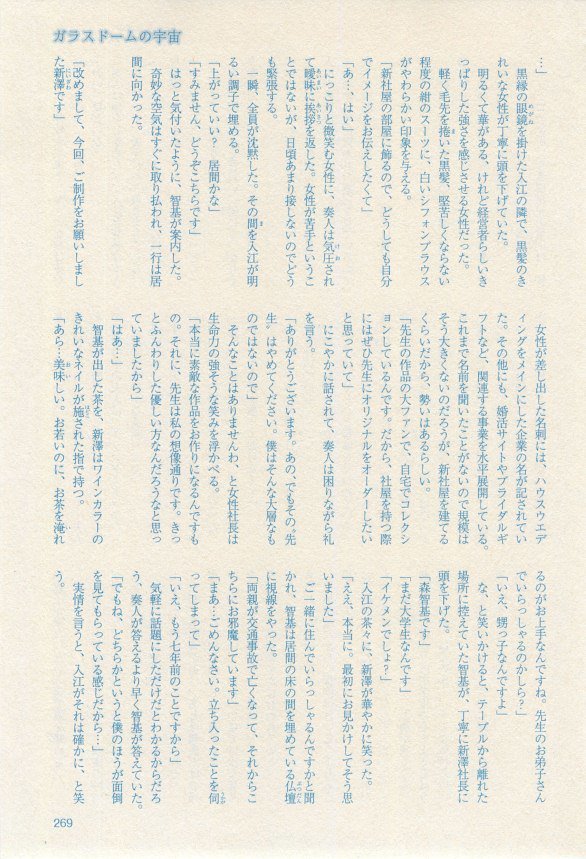 ガラスドームの宇宙
…」
黒縁の眼鏡を掛けた入江の隣で、黒髪のき
れいな女性が丁寧に頭を下げていた。
明るくて華がある、けれど経営者らしいき
っぱりした強さを感じさせる女性だった。
軽く毛先を捲いた黒髪、堅苦しくならない
程度の紺のスーツに、白いシフォンブラウス
がやわらかい印象を与える。
「新社屋の部屋に飾るので、どうしても自分
でイメージをお伝えしたくて」
「あ…、はい」
にっこりと微笑む女性に、奏人は気圧され
て曖昧に挨拶を返した。女性が苦手というこ
とではないが、日頃あまり接しないのでどう
も緊張する。
一瞬、全員が沈黙した。その間を入江が明
るい調子で埋める。
「上がっていい? 居間かな」
「すみません、どうぞこちらです」
はっと気付いたように、智基が案内した。
奇妙な空気はすぐに取り払われ、一行は居
間に向かった。
「改めまして、今回、ご制作をお願いしまし
た新澤です」
女性が差し出した名刺には、ハウスウエデ
ィングをメインにした企業の名が記されてい
た。その他にも、婚活サイトやブライダルギ
フトなど、関連する事業を水平展開している。
これまで名前を聞いたことがないので規模は
そう大きくないのだろうが、新社屋を建てる
くらいだから、勢いはあるらしい。
「先生の作品の大ファンで、自宅でコレクシ
ョンしているんです。だから、社屋を持つ際
にはぜひ先生にオリジナルをオーダーしたい
と思っていて」
にこやかに話されて、奏人は困りながら礼
を言う。
「ありがとうございます。あの、でもその〝先
生〟はやめてください。僕はそんな大層なも
のではないので」
そんなことはありませんわ、と女性社長は
生命力の強そうな笑みを浮かべる。
「本当に素敵な作品をお作りになるんですも
の。それに、先生は私の想像通りです。きっ
とふんわりした優しい方なんだろうなと思っ
ていましたから」
「はあ…」
智基が出した茶を、新澤はワインカラーの
きれいなネイルが施された指で持つ。
「あら…美味しい。お若いのに、お茶を淹れ
るのがお上手なんですね。先生のお弟子さん
でいらっしゃるのかしら?」
「いえ、甥っ子なんですよ」
な、と笑いかけると、テーブルから離れた
場所に控えていた智基が、丁寧に新澤社長に
頭を下げた。
「森智基です」
「まだ大学生なんです」
「イケメンでしょ?」
入江の茶々に、新澤が華やかに笑った。
「ええ、本当に。最初にお見かけしてそう思
いました」
ご一緒に住んでいらっしゃるんですかと聞
かれ、智基は居間の床の間を埋めている仏壇
に視線をやった。
「両親が交通事故で亡くなって、それからこ
ちらにお邪魔しています」
「まあ…ごめんなさい。立ち入ったことを伺
ってしまって」
「いえ、もう七年前のことですから」
気軽に話題にしただけだとわかるからだろ
う、奏人が答えるより早く智基が答えていた。
「でもね、どちらかというと僕のほうが面倒
を見てもらっている感じだから…」
実情を言うと、入江がそれは確かに、と笑
う。
269